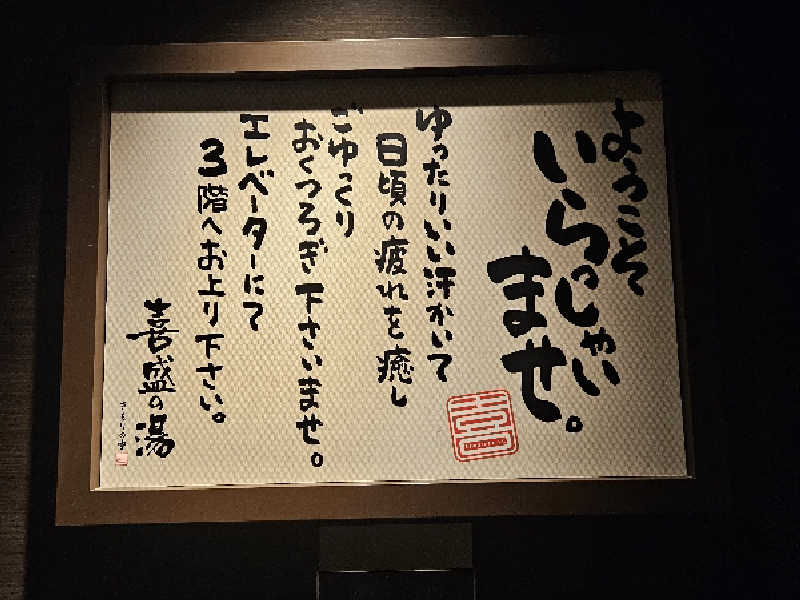 ようこそ
いらっしゃい
ませ。
ゆったりいい汗かいて
日頃の疲れを癒し
ごゆっくり
おくつろぎ下さいませ。
エレベーターにて
3階へお上り下さい。
喜盛の湯
喜